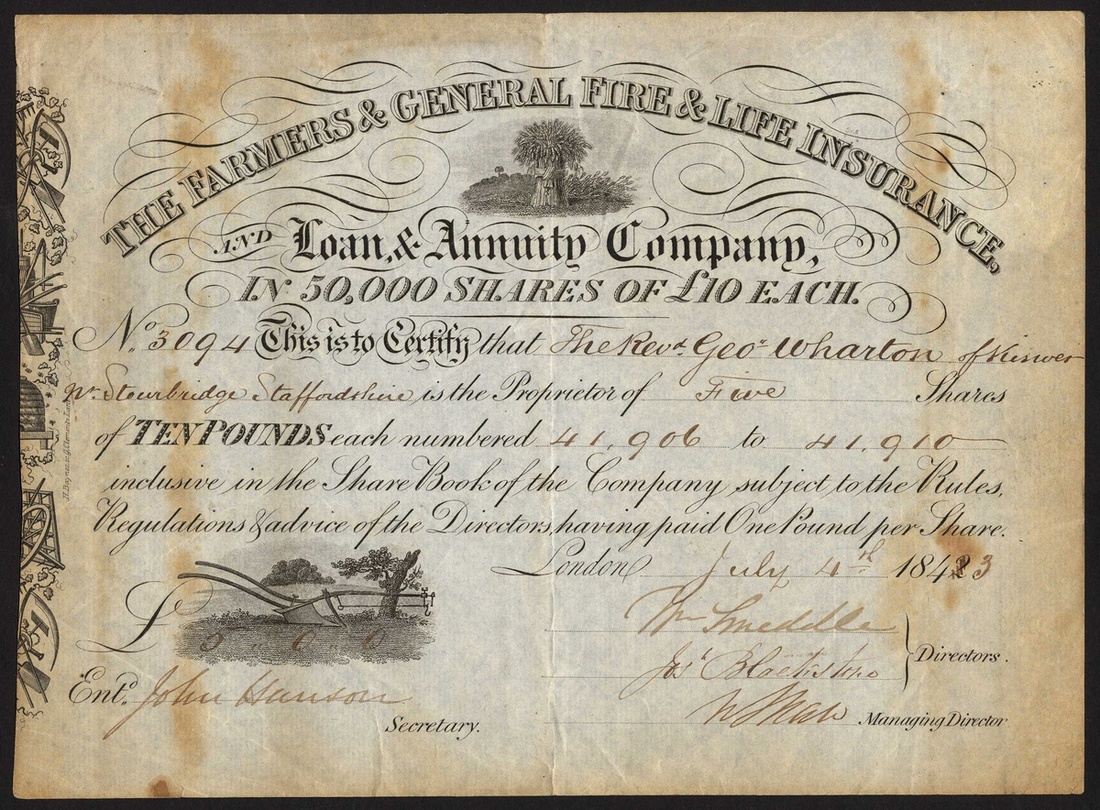 THE FARMERS & GENERAL FIRE & LIFE INSURANCE,
AND Loan, & Annuity Company,
IN 50,000 SHARES OF £10 EACH.
No. 3094 This is to Certify that The Revd. Geoe. Wharton of Kinver
Nr. Stourbridge Staffordshire is the Proprietor of Five Shares
of TEN POUNDS each numbered 41,906 to 41,910
inclusive in the Share Book of the Company subject to the Rules,
Regulations & advice of the Directors, having paid One Pound per Share.
London July 4th 1843
£ 5. 0. 0
Wm Smeddle
Directors.
Entd. John Hanson
Secretary.
Managing Director